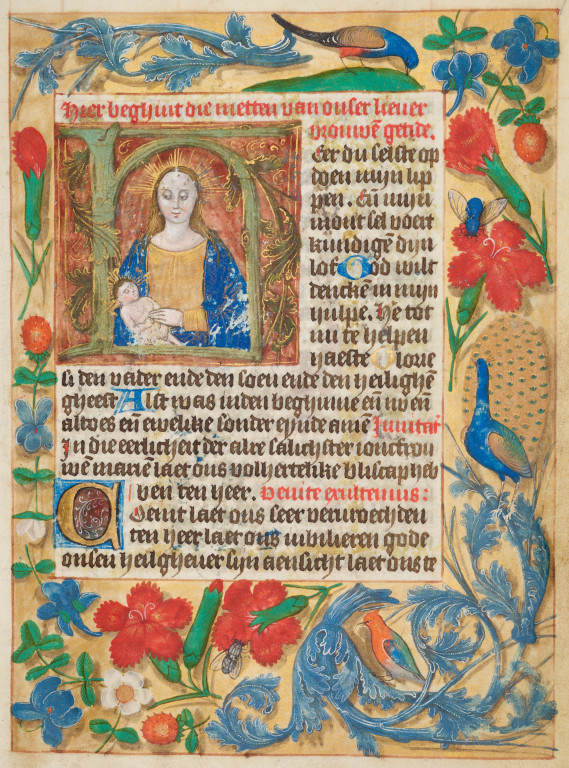 Hier beghint die metten van onser lieuer
vrouwē getide.
HEer du selste op
doen mijn lip
pen. Eñ mijn
mont sel voert
kundigē dijn
lof God wilt
denckē in mijn
hulpe. He tot
mi te helpen
haeste Glorie
si den vader ende den soen ende den heilighē
gheest Alst was inden beghinne eñ nv eñ
altoes eñ ewelike sonder eynde amē Inuitat
In die eerlicheit der alre salichster ioncfrou
wē mariē laet ons volhertelike bliscap heb
ben ten heer. Venite exultemus:
Coemt laet ons seer vervroechden
ten heer laet ons iubilieren gode
onsen heilgheuer sijn aensicht laet ons te